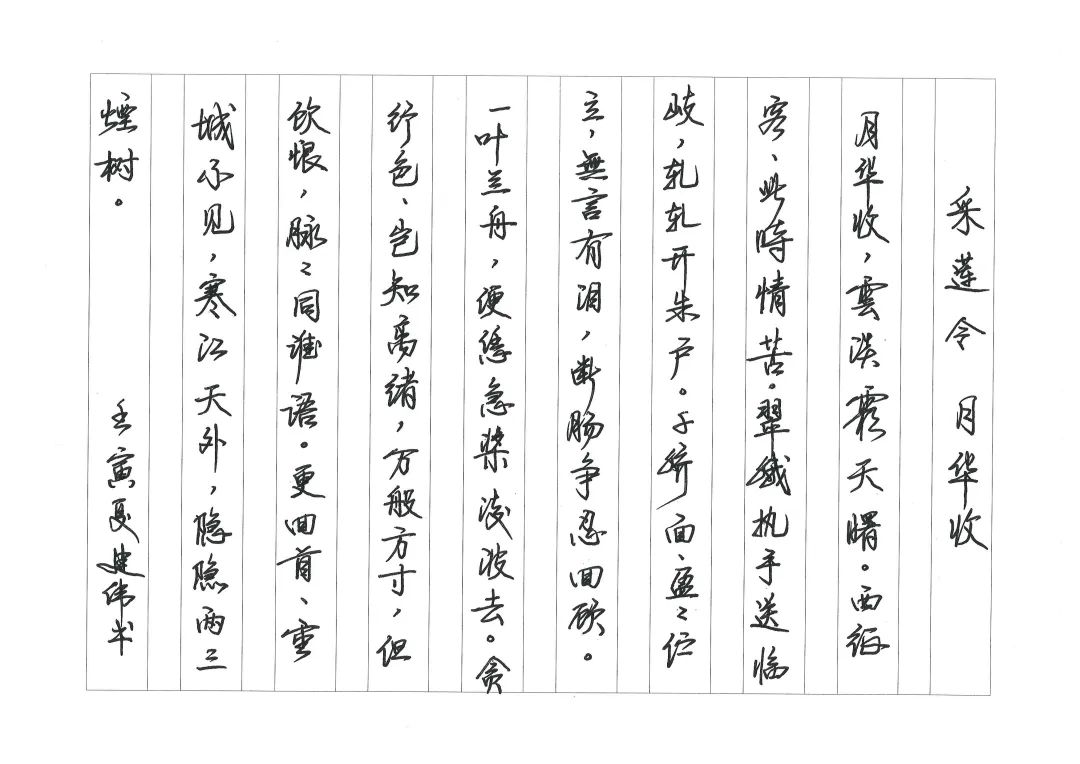 采莲令 月华收
月华收，雲淡霜天曙。西征
客、此時情苦。翠娥执手送临
歧，轧轧开朱户。千娇面、盈〻伫
立，無言有泪，断肠争忍回顾。
一叶兰舟，便恁急桨凌波去。贪
行色、岂知离绪，万般方寸，但
饮恨，脉〻同谁语。更回首、重
城不见，寒江天外，隐隐两三
煙树。
壬寅夏建伟书